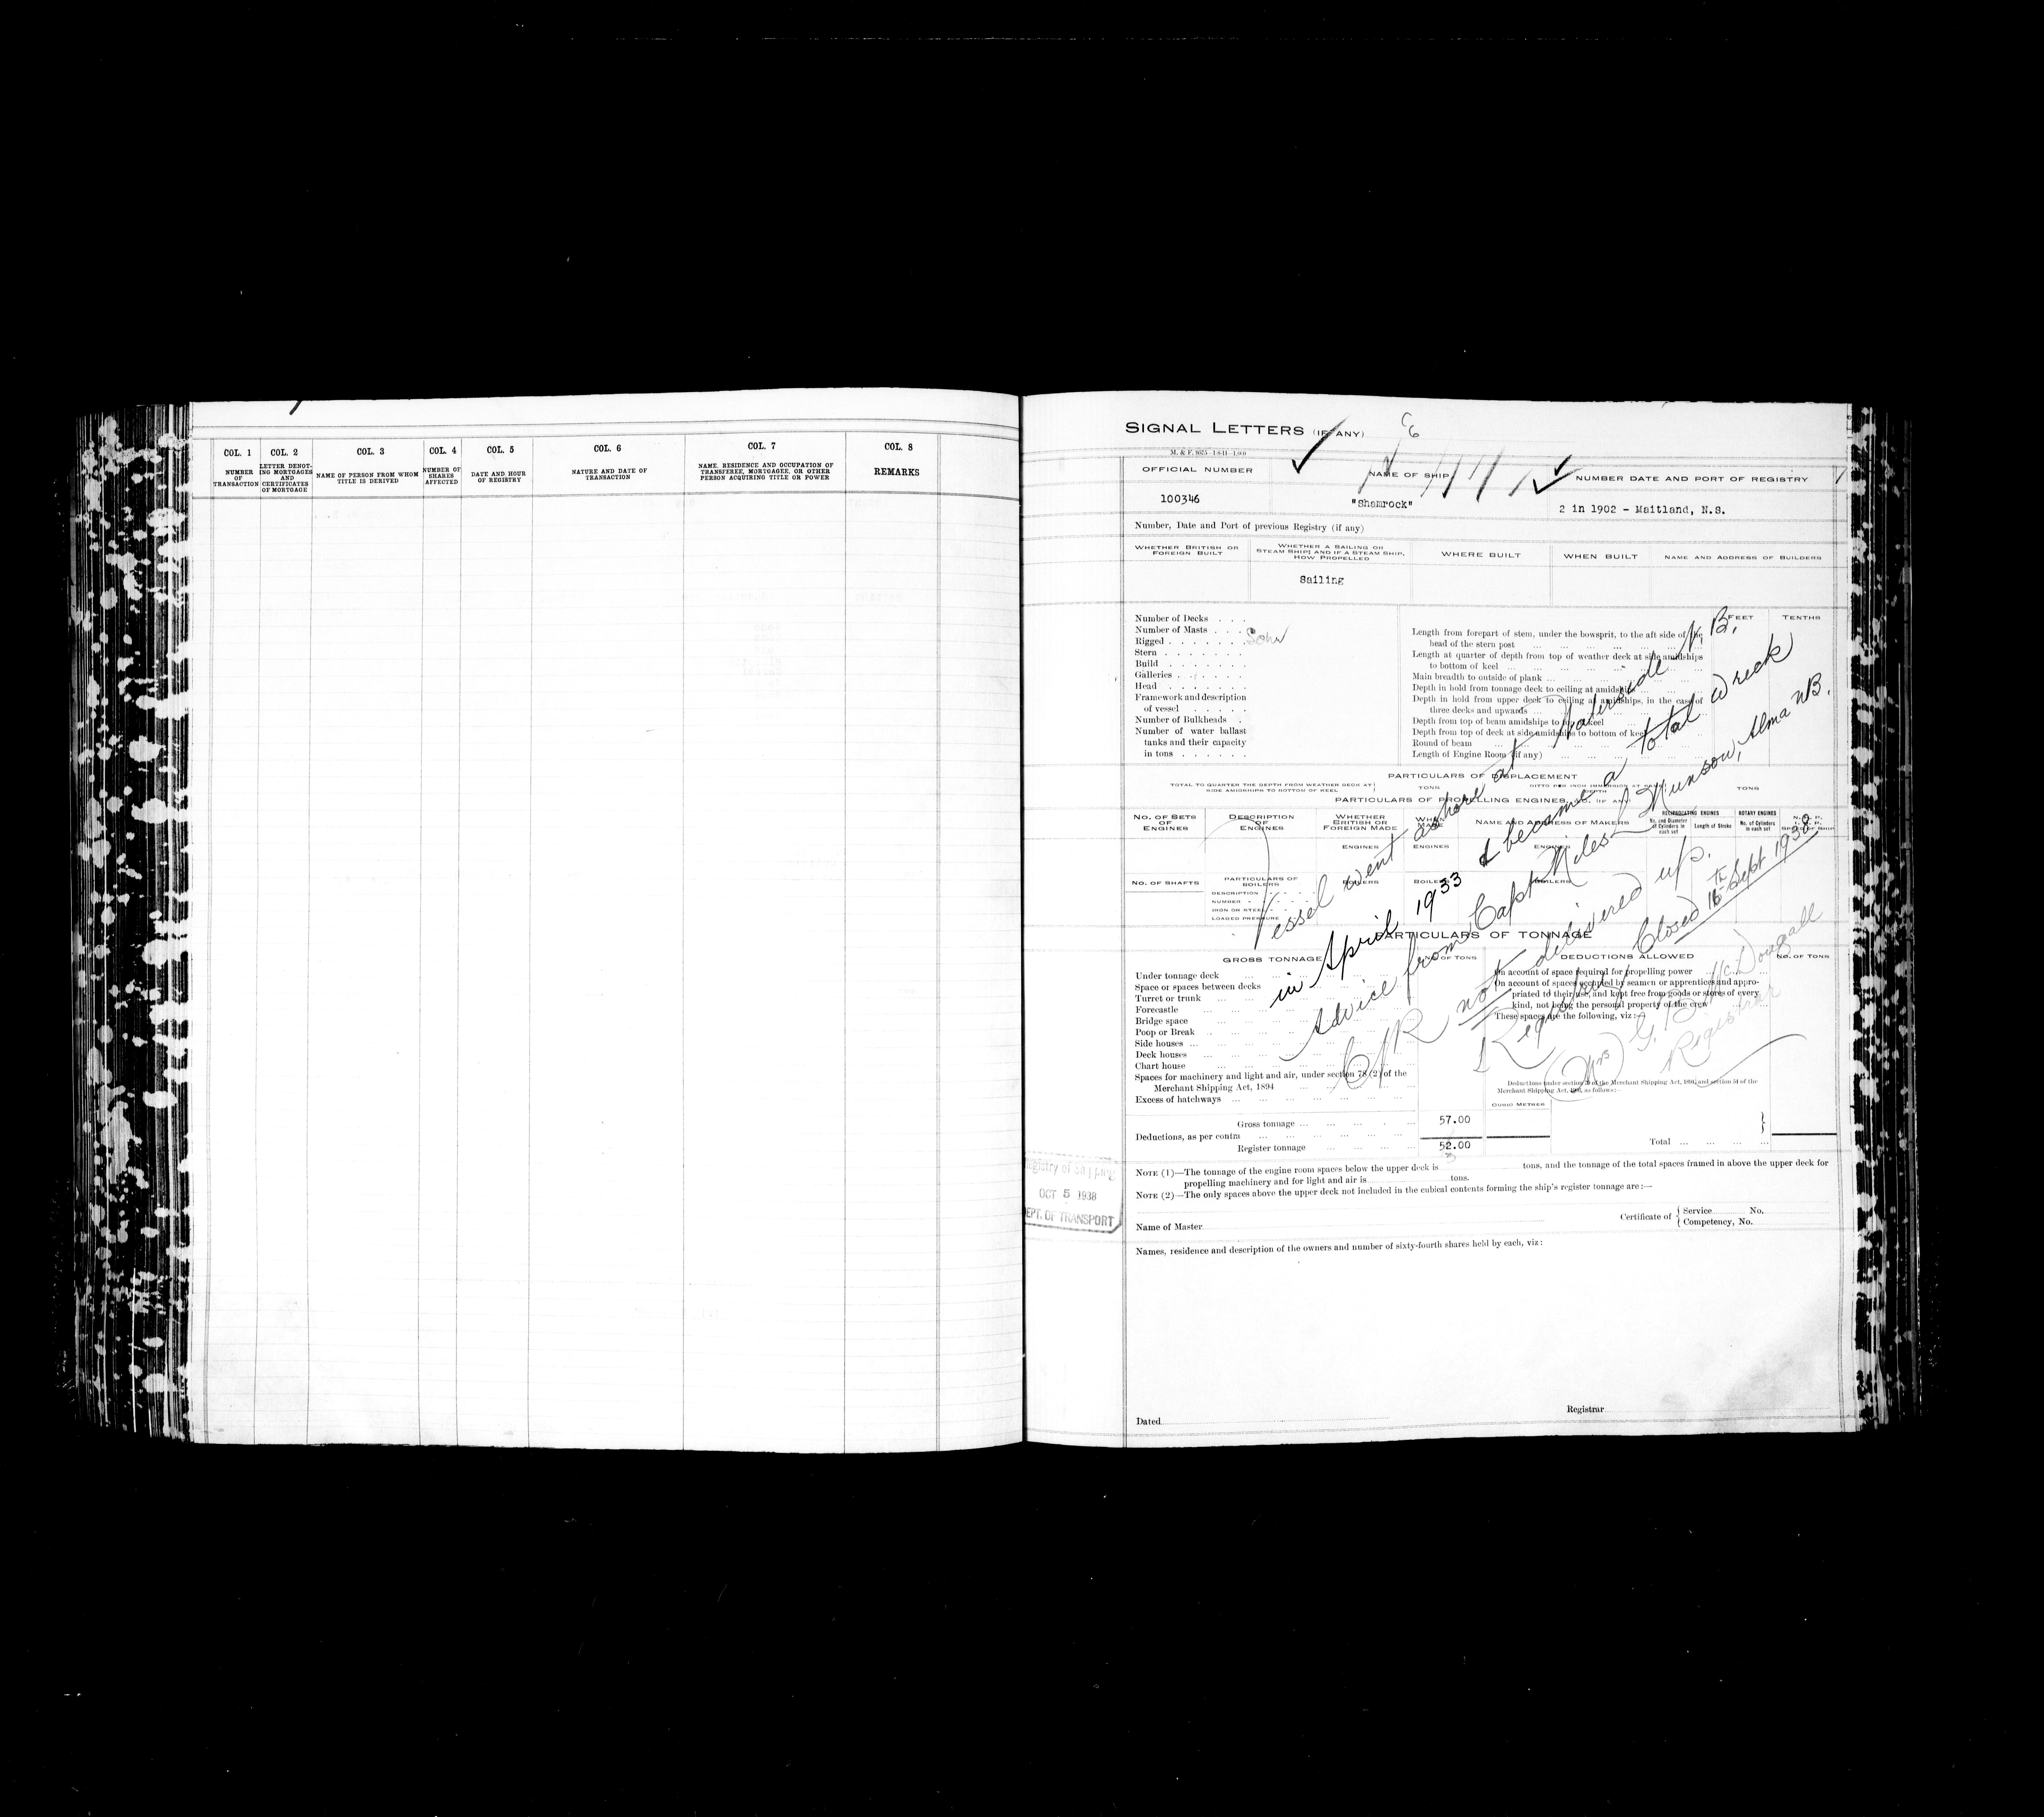 COL. 1 COL. 2 COL. 3 COL. 4 COL. 5 COL. 6 COL. 7 COL. 8
NUMBER OF TRANSACTION
LETTER DENOTING MORTGAGES AND CERTIFICATES OF MORTGAGE
NAME OF PERSON FROM WHOM TITLE IS DERIVED
NUMBER OF SHARES AFFECTED
DATE AND HOUR OF REGISTRY
NATURE AND DATE OF TRANSACTION
NAME, RESIDENCE AND OCCUPATION OF TRANSFEREE, MORTGAGEE, OR OTHER PERSON ACQUIRING TITLE OR POWER
REMARKS
SIGNAL LETTERS (IF ANY)
OFFICIAL NUMBER NAME OF SHIP NUMBER DATE AND PORT OF REGISTRY
100346 "Shamrock" 2 in 1902 - Maitland, N.S.
Number, Date and Port of previous Registry (if any)
WHETHER BRITISH OR FOREIGN BUILT
WHETHER A SAILING OR STEAM SHIP; AND IF A STEAM SHIP, HOW PROPELLED
WHERE BUILT WHEN BUILT NAME AND ADDRESS OF BUILDERS
Sailing
FEET TENTHS
Number of Decks . . .
Number of Masts . . .
Rigged . . . . . . . Schr
Stern . . . . . . .
Build . . . . . . .
Galleries . . . . . .
Head . . . . . . .
Framework and description
of vessel . . . . .
Number of Bulkheads .
Number of water ballast
tanks and their capacity
in tons . . . . . .
Length from forepart of stem, under the bowsprit, to the aft side of the
head of the stern post
Length at quarter of depth from top of weather deck at side amidships
to bottom of keel
Main breadth to outside of plank
Depth in hold from tonnage deck to ceiling at amidships
Depth in hold from upper deck to ceiling at amidships, in the case of
three decks and upwards
Depth from top of beam amidships to top of keel
Depth from top of deck at side amidships to bottom of keel
Round of beam
Length of Engine Room (if any)
PARTICULARS OF DISPLACEMENT
TOTAL TO QUARTER THE DEPTH FROM WEATHER DECK AT
SIDE AMIDSHIPS TO BOTTOM OF KEEL
TONS
DITTO PER INCH IMMERSION AT SAME
DEPTH
TONS
PARTICULARS OF PROPELLING ENGINES, &c. (IF ANY)
NO. OF SETS OF ENGINES
DESCRIPTION OF ENGINES
WHETHER BRITISH OR FOREIGN MADE
WHEN MADE
NAME AND ADDRESS OF MAKERS
RECIPROCATING ENGINES
No. and Diameter of Cylinders in each set
Length of Stroke
ROTARY ENGINES
No. of Cylinders in each set
ENGINES ENGINES ENGINES
NO. OF SHAFTS
PARTICULARS OF BOILERS
BOILERS BOILERS BOILERS
DESCRIPTION
NUMBER
IRON OR STEEL
LOADED PRESSURE
Vessel went ashore at Waterside N.B.
in April 1933 & became a total wreck
Advice from Capt Miles Munson, Alma NB.
C/R not delivered up.
Registry Closed 16th Sept 1938
G. B. McDougall
(Mrs) Registrar
PARTICULARS OF TONNAGE
GROSS TONNAGE NO. OF TONS DEDUCTIONS ALLOWED NO. OF TONS
Under tonnage deck
Space or spaces between decks
Turret or trunk
Forecastle
Bridge space
Poop or Break
Side houses
Deck houses
Chart house
Spaces for machinery and light and air, under section 78 (2) of the
Merchant Shipping Act, 1894
Excess of hatchways
On account of space required for propelling power
On account of spaces occupied by seamen or apprentices and appro-
priated to their use, and kept free from goods or stores of every
kind, not being the personal property of the crew
These spaces are the following, viz:—
Deductions under section 79 of the Merchant Shipping Act, 1894, and section 54 of the
Merchant Shipping Act, 1906, as follows:—
CUBIC METRES
Gross tonnage 57.00
Deductions, as per contra
Register tonnage 52.00
Total
NOTE (1)—The tonnage of the engine room spaces below the upper deck is tons, and the tonnage of the total spaces framed in above the upper deck for
propelling machinery and for light and air is tons.
NOTE (2)—The only spaces above the upper deck not included in the cubical contents forming the ship's register tonnage are:—
Registry of Shipping
OCT 5 1938
DEPT. OF TRANSPORT
Name of Master
Certificate of { Service No.
Competency, No.
Names, residence and description of the owners and number of sixty-fourth shares held by each, viz:
Registrar
Dated